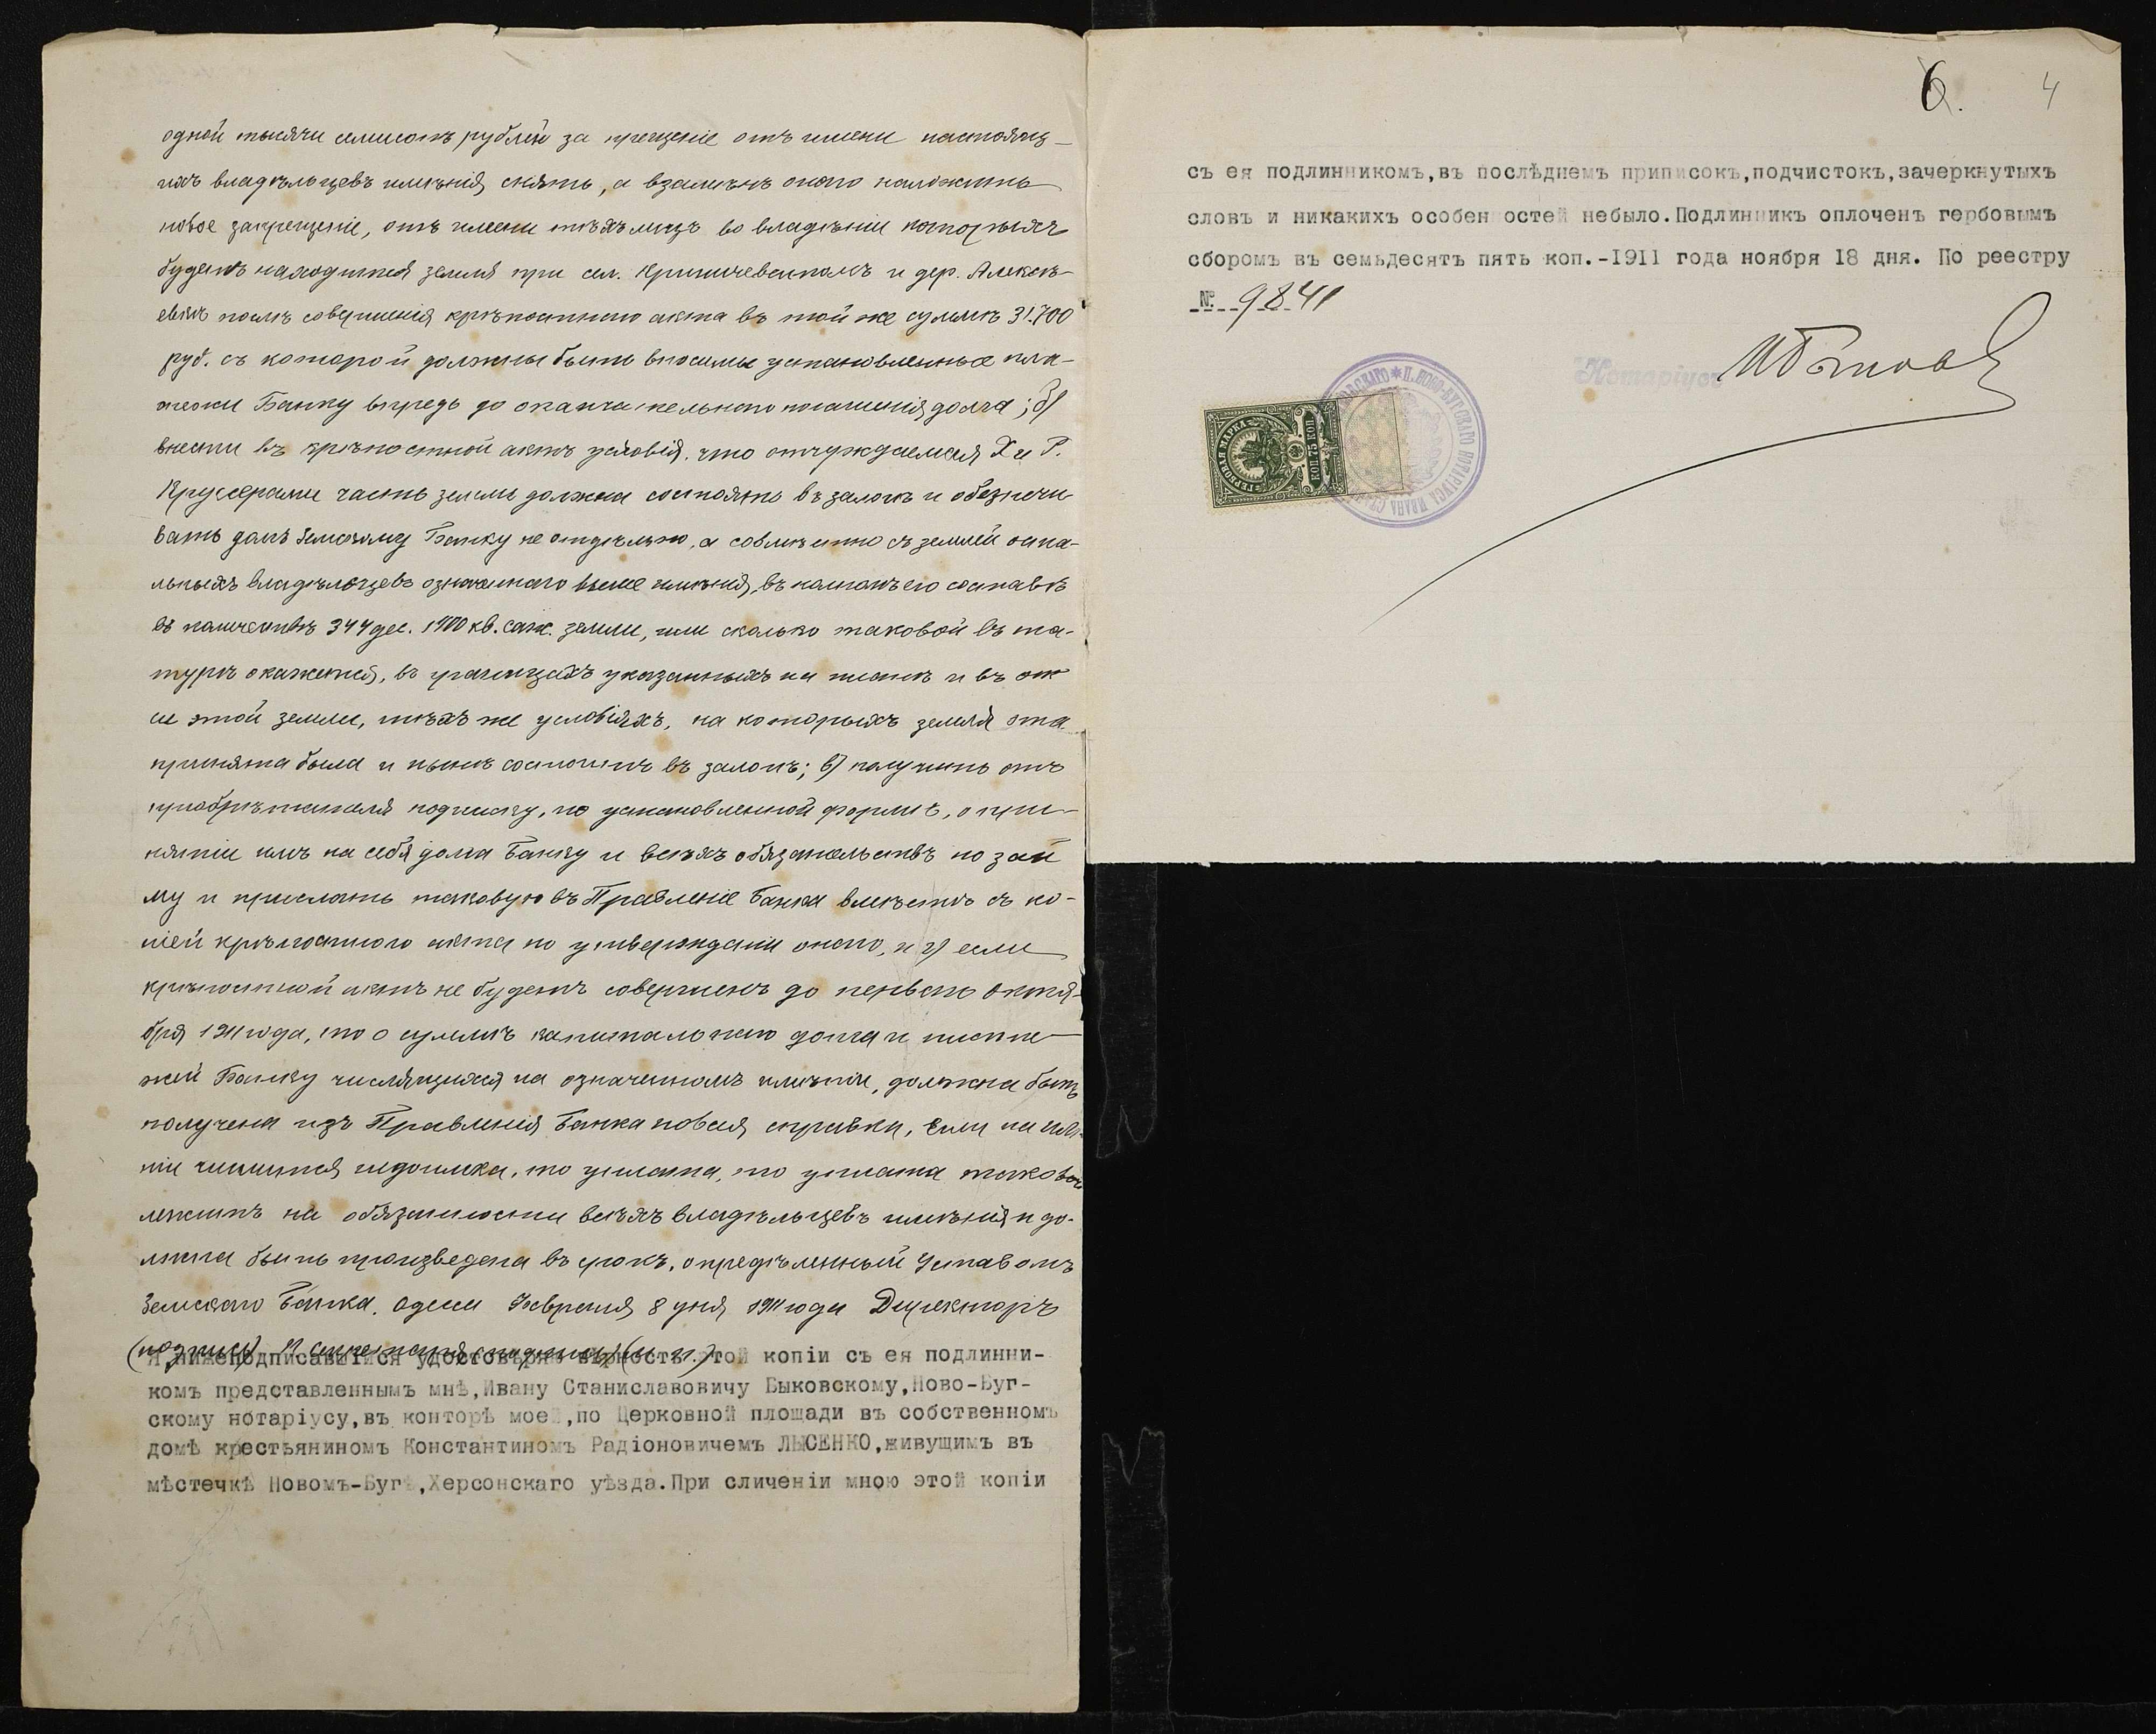 одной тысячи семисотъ рублей за прещеніе отъ имени настоящ-
ихъ владѣльцевъ имѣнія снять, а взамѣнъ онаго наложить
новое запрещеніе, отъ имени тѣхъ лицъ во владѣніи которыхъ
будетъ находится земля при сел. и дер. Алексѣ-
евкѣ послѣ совершенія крѣпостного акта въ той же суммѣ 31.700
руб. съ которой должны быть вносимы установленные пла-
тежи Банку впредь до окончательнаго погашенія долга; б)
внести въ крѣпостной актъ условія, что отчуждаемая Х и Р.
Круссерами часть земли должна состоять въ залогѣ и обезпечи-
вать долгъ Земскому Банку не отдѣльно, а совмѣстно съ землей оста-
льныхъ владѣльцевъ означеннаго выше имѣнія, въ полномъ его составѣ
въ количествѣ 344 дес. 1900 кв. саж. земли, или сколько таковой въ на-
турѣ окажется, въ границахъ указанныхъ на планѣ и въ оп
си этой земли, тѣхъ же условіяхъ, на которыхъ земля эта
принята была и нынѣ состоитъ въ залогѣ; в) получить отъ
пріобрѣтателя подписку, по установленной формѣ, о при-
нятіи имъ на себя долга Банку и всѣхъ обязательствъ по зай
му и прислать таковую въ Правленіе Банка вмѣстѣ съ ко-
піей крѣпостного акта по утвержденіи онаго, и г) если
крѣпостной актъ не будетъ совершенъ до перваго Октя-
бря 1911 года, то о суммѣ капитальнаго долга и плате-
жей Банку числящихся на означенномъ имѣніи, должна быть
получена изъ Правленія Банка новая справка, Если на имѣ-
ніи числится недоимка, то уплата, то уплата таковой
лежитъ на обязанности всѣхъ владѣльцевъ имѣнія и до-
лжна быть произведена въ срокъ, опредѣленный Уставомъ
Земскаго Банка. Одесса Февраля 8 дня 1911 года Директоръ
(подпись)
Я нижеподписавшійся удостовѣряю вѣрность этой копіи съ ея подлинни-
комъ представленнымъ мнѣ,Ивану Станиславовичу Быковскому,Ново-Буг-
скому нотаріусу,въ конторѣ моей,по Церковной площади въ собственномъ
домѣ крестьяниномъ Константиномъ Радіоновичемъ ЛЫСЕНКО,живущимъ въ
мѣстечкѣ Новомъ-Бугѣ,Херсонскаго уѣзда.При сличеніи мною этой копіи
6. 4
съ ея подлинникомъ,въ послѣднемъ приписокъ,подчистокъ,зачеркнутыхъ
словъ и никакихъ особенностей небыло.Подлинникъ оплоченъ гербовымъ
сборомъ въ семьдесятъ пять коп.-1911 года ноября 18 дня. По реестру
№ 9841
Нотаріусъ
ГЕРБОВАЯ МАРКА
КОП 75 КОП
Н.НОВО-БУГСКАГО НОТАРІУСА ИВАНА